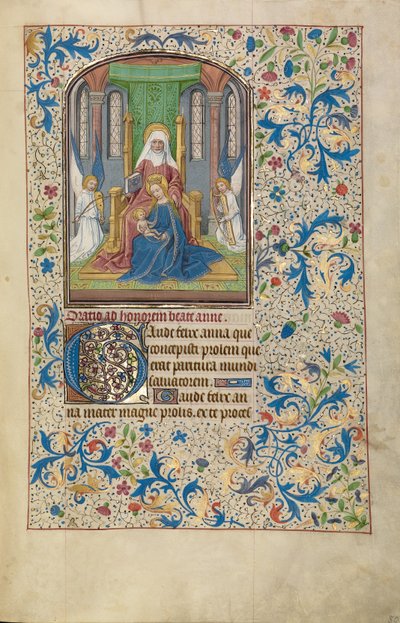 Oratio ad honorem beate anne.
Gaude felix anna que
concepisti prolem que
erat paritura mundi
saluatorem.
Gaude felix an
na mater magne prolis. ex te procel